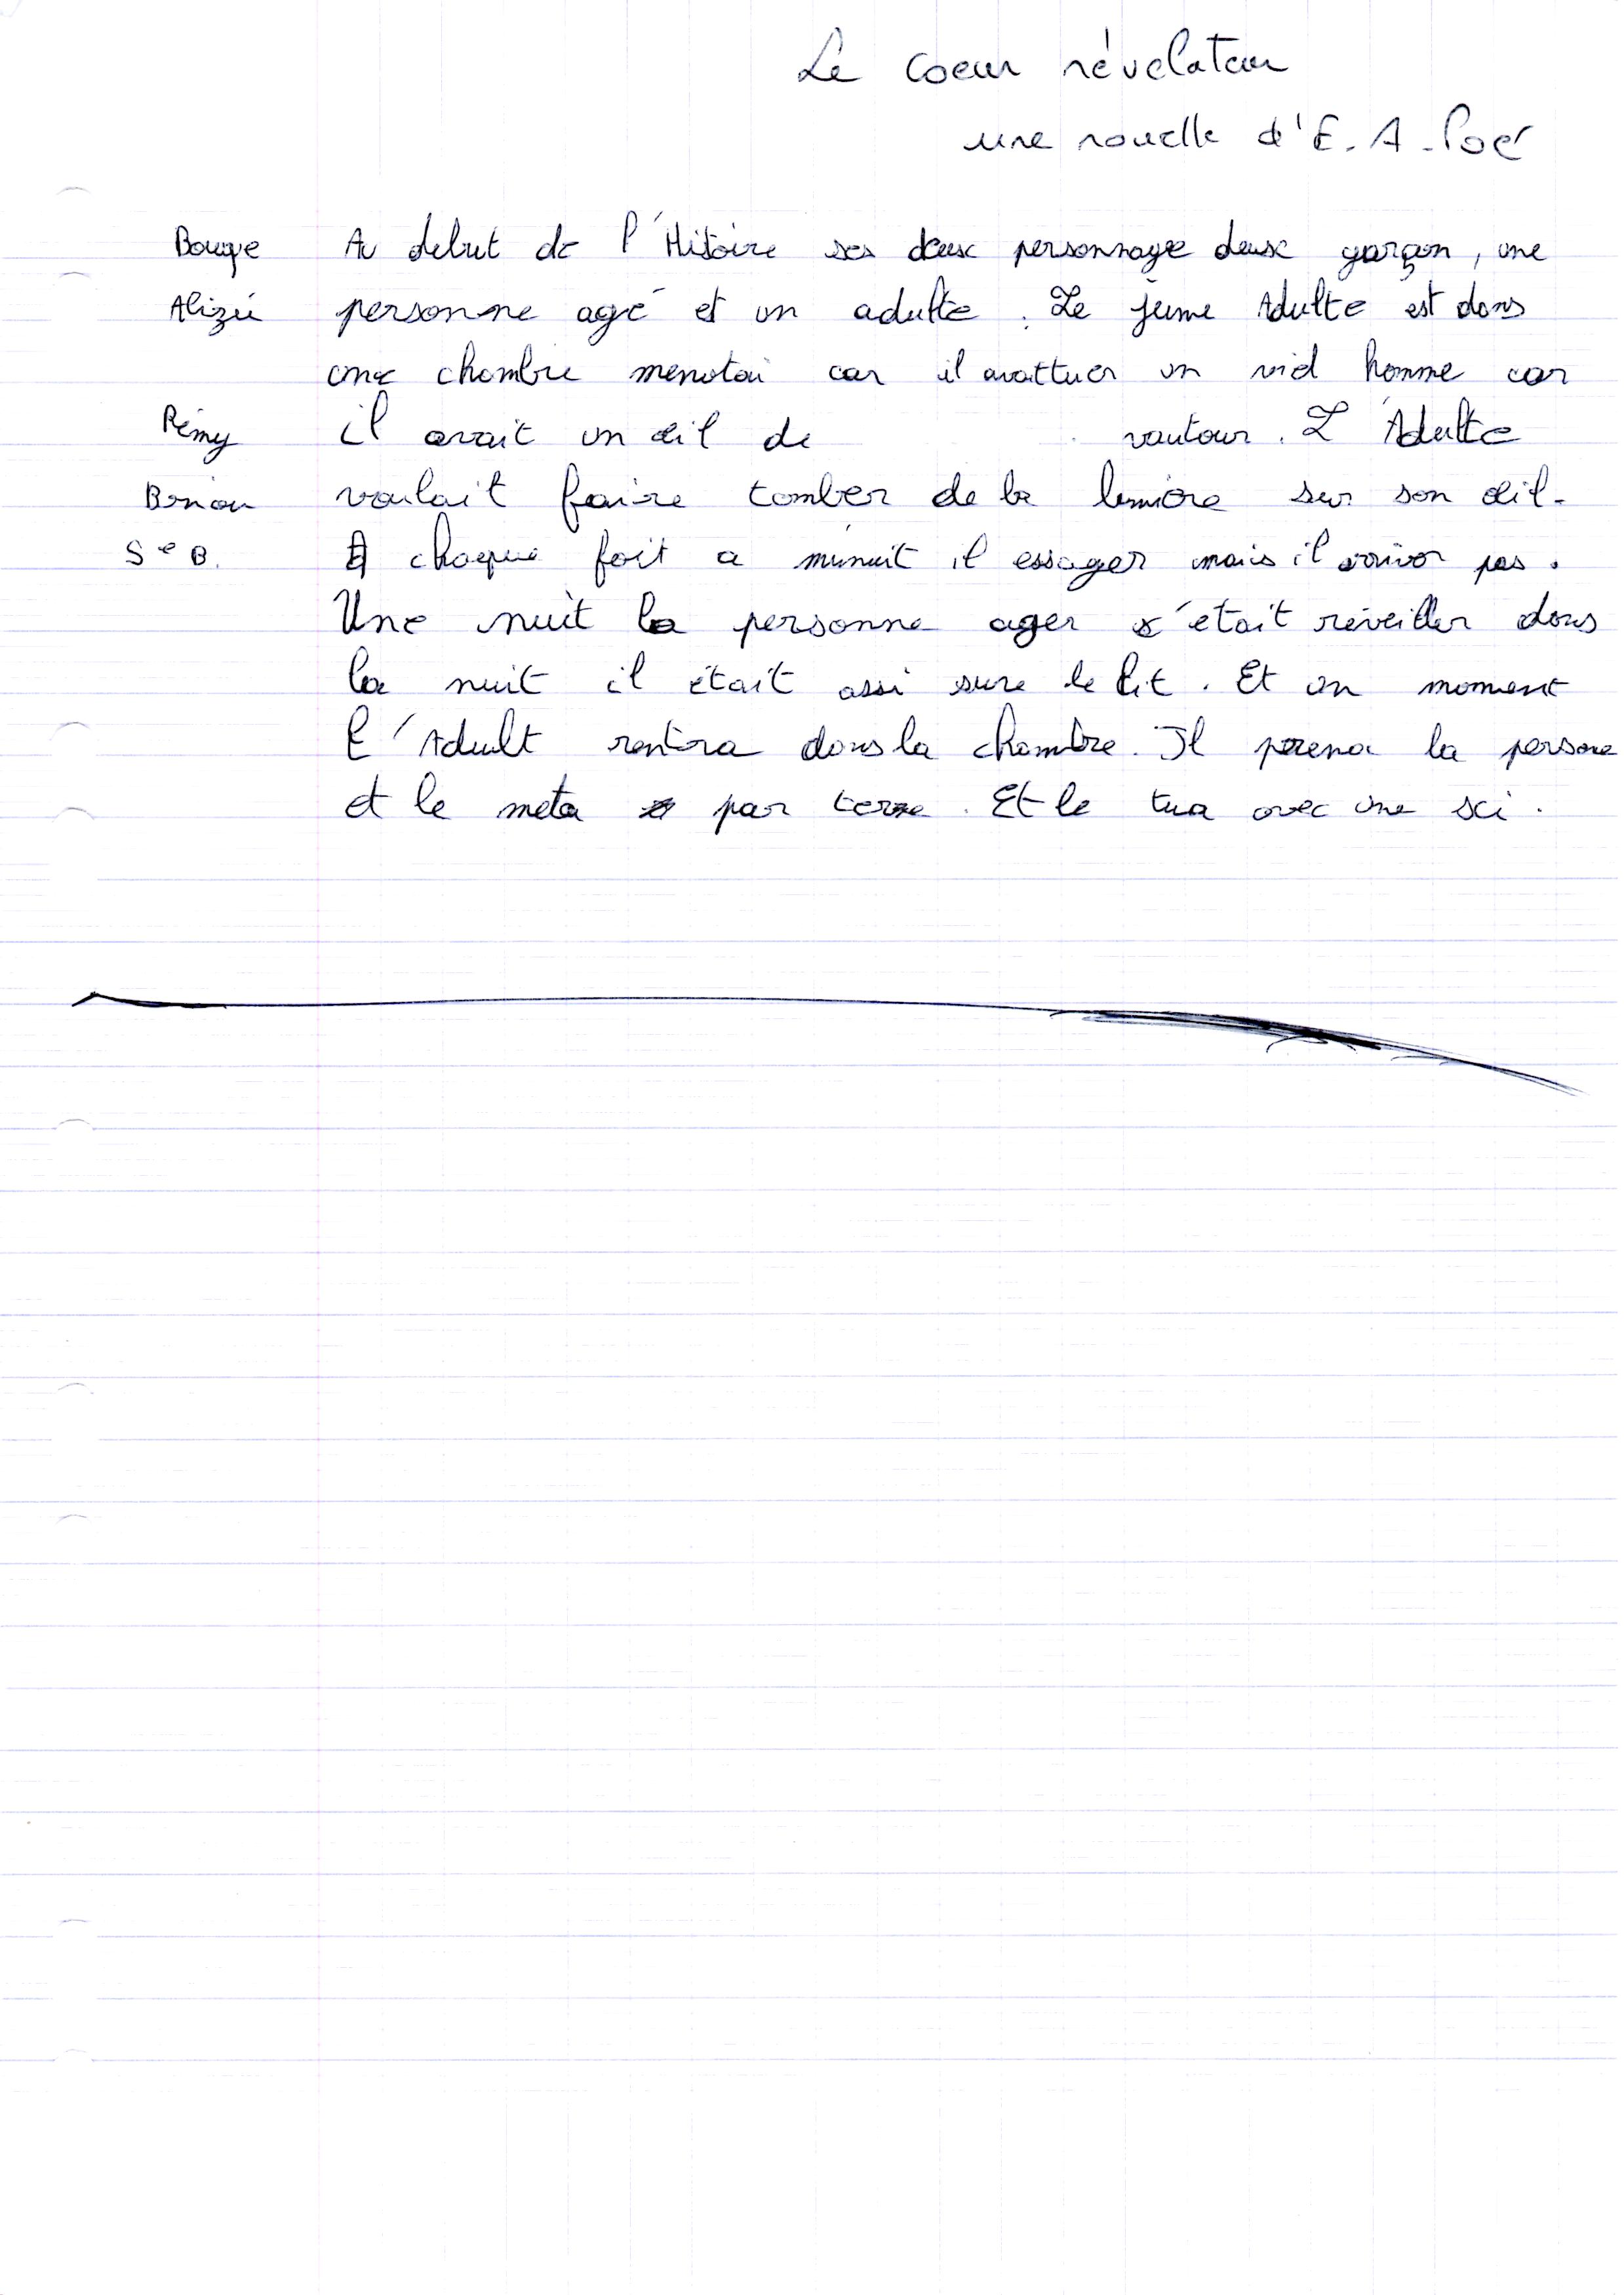 Le coeur révelateur
une nouvelle d'E. A. Poé
Au debut de l'Hitoire ses deux personnage deux garçon, une
Alizée personne agé et un adulte. Le jeune Adulte est dans
une chambre menotai car il avait tuer un viel homme car
Rémy il avait un œil de vautour. L'Adulte
voulait faire tomber de la lumiore sur son œil.
S e B. A chaque foit a minuit il essayer mais il arivor pas.
Une nuit la personne ager s'était réveiller dans
la nuit il était assi sure le lit. Et un moment
l'Adult rentra dans la chambre. Il prena la persone
et le meta par terre. Et le tua avec une sci.